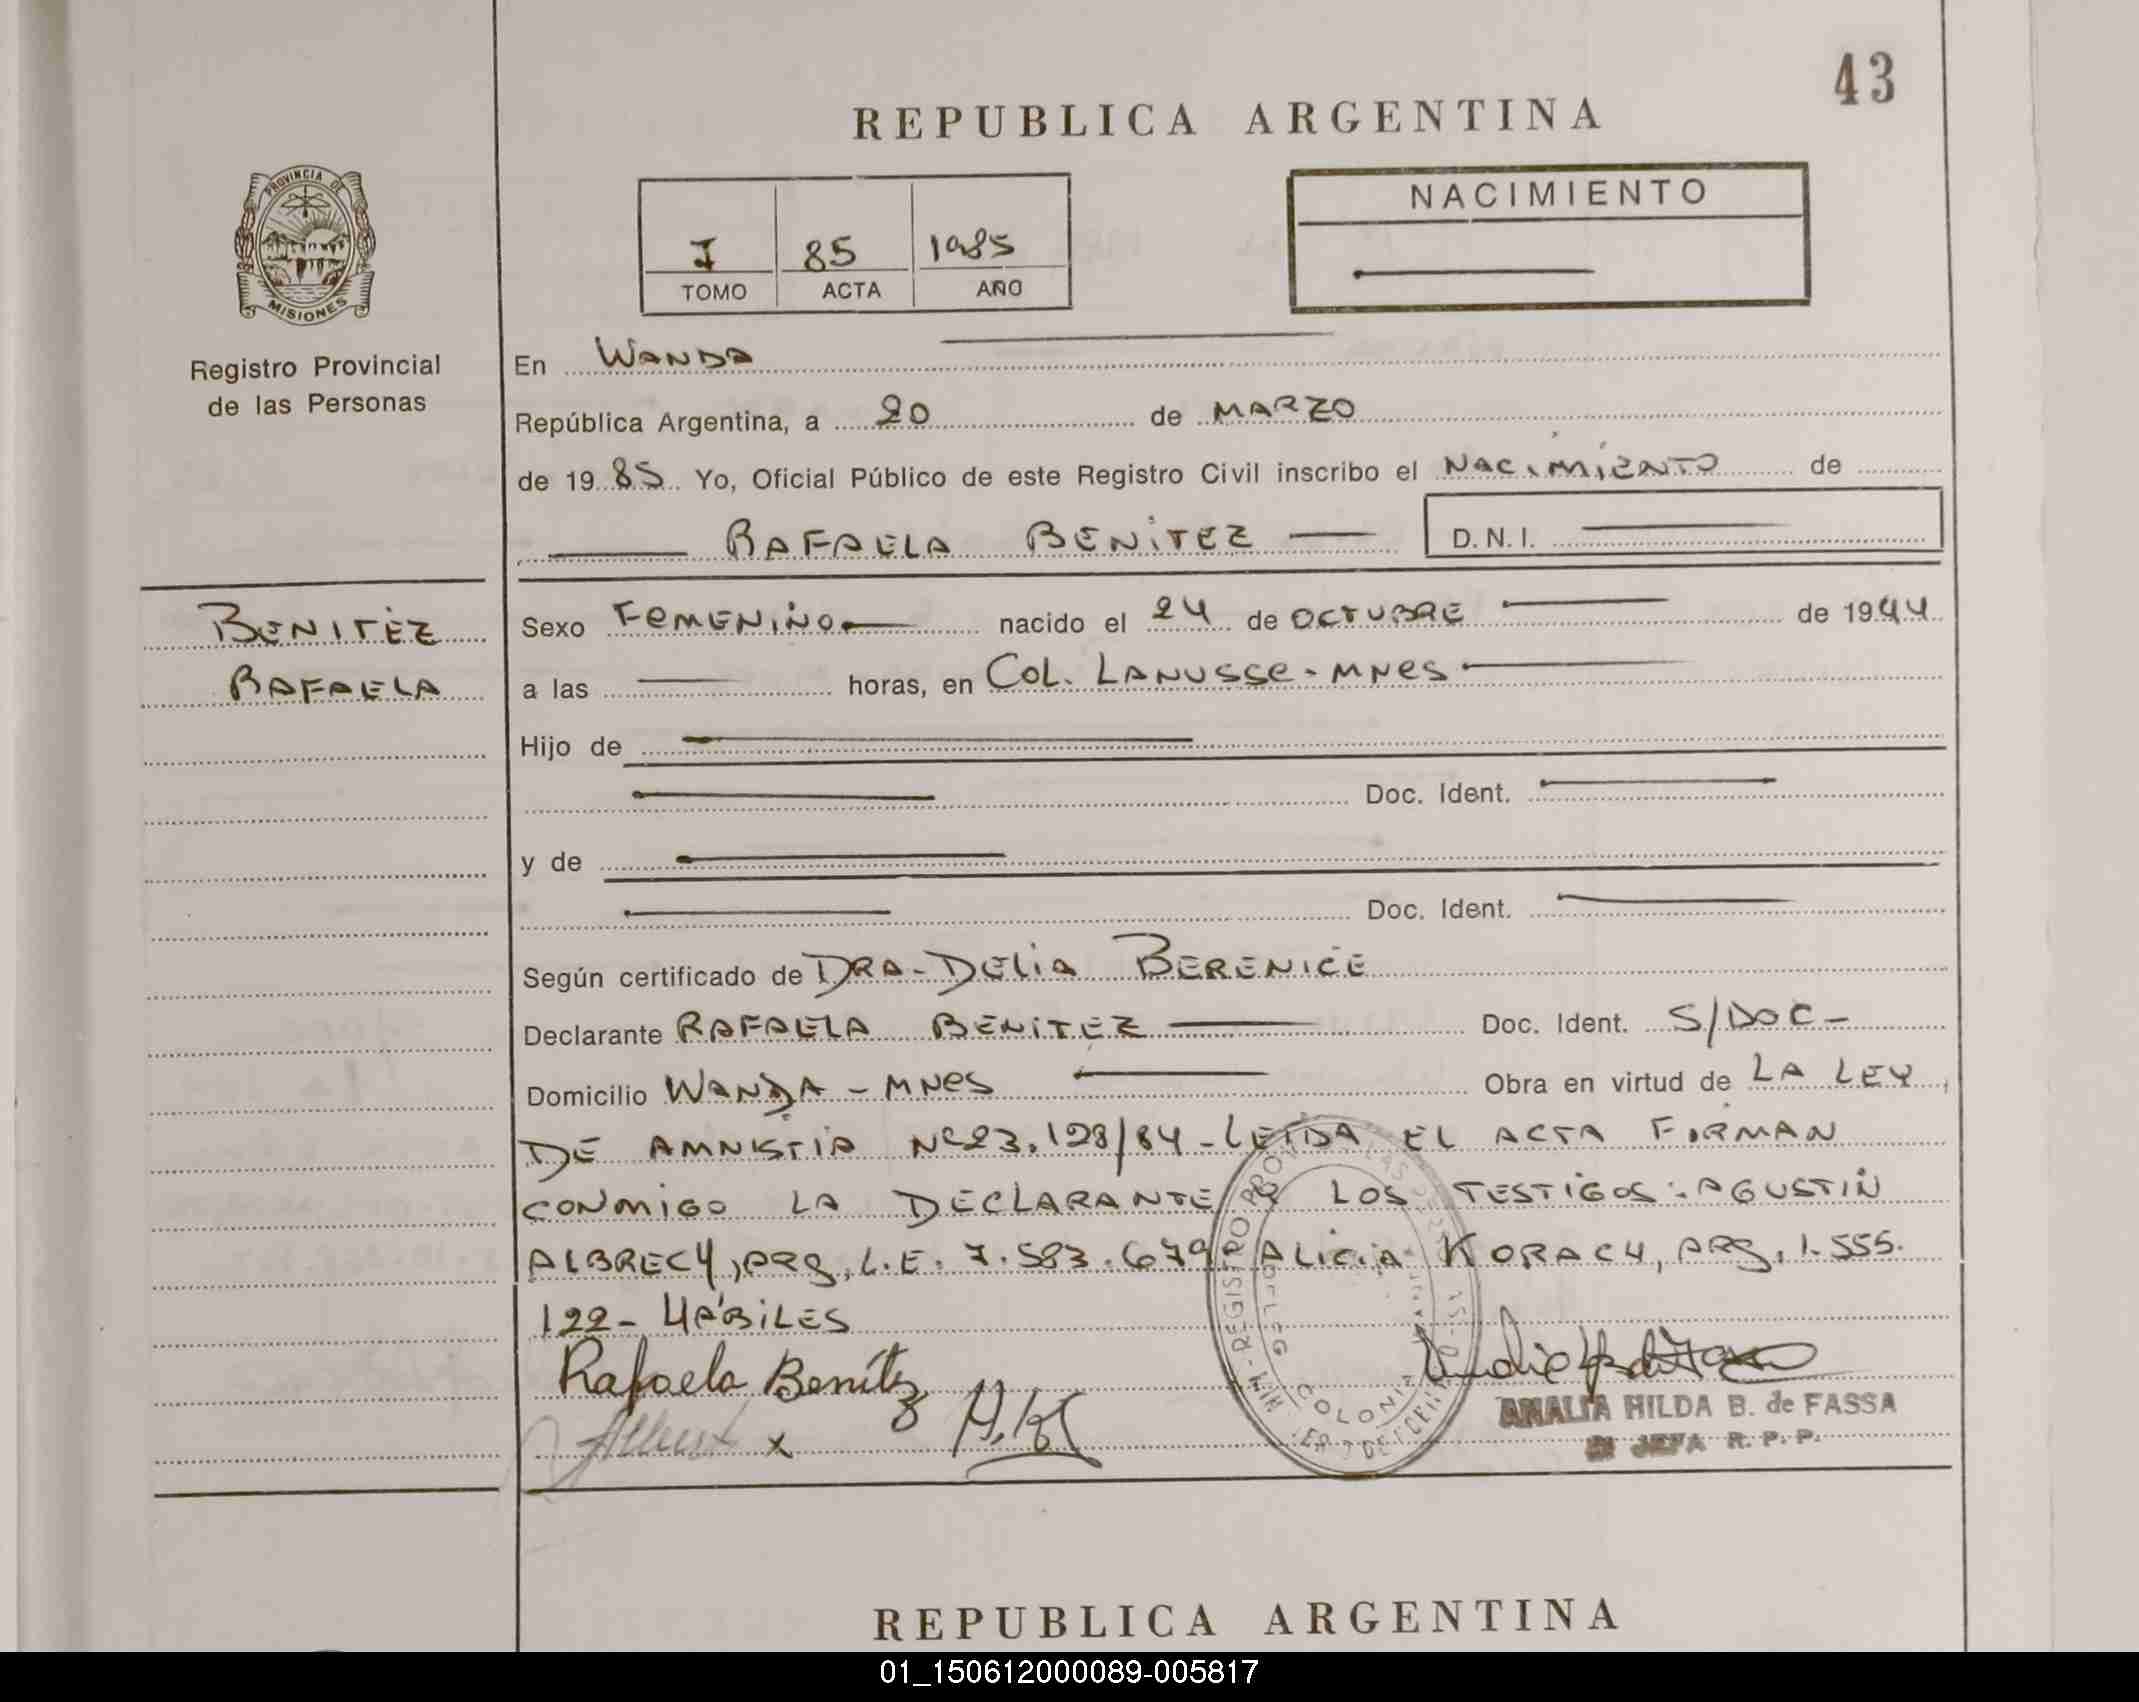 43
REPUBLICA ARGENTINA
PROVINCIA DE
MISIONES
Registro Provincial
de las Personas
I 85 1985
TOMO ACTA AÑO
NACIMIENTO
En WANDA
República Argentina, a 20 de MARZO
de 1985 Yo, Oficial Público de este Registro Civil inscribo el NACIMIENTO de
RAFAELA BENITEZ D.N.I.
BENITEZ
RAFAELA
Sexo FEMENINO nacido el 24 de OCTUBRE de 1944
a las horas, en COL. LANUSSE - MNES
Hijo de
Doc. Ident.
y de
Doc. Ident.
Según certificado de DRA-DELIA BERENICE
Declarante RAFAELA BENITEZ Doc. Ident. S/DOC-
Domicilio WANDA - MNES Obra en virtud de LA LEY
DE AMNISTIA Nº 23.128/84 - LEIDA EL ACTA FIRMAN
CONMIGO LA DECLARANTE Y LOS TESTIGOS: AGUSTIN
ALBRECH, ARG, L.E. 7.583.679 ALICIA KORACH, ARG, 1.555.
122 - HÁBILES
Rafaela Benítez
AMALIA HILDA B. de FASSA
JEFA R. P. P.
REGISTRO
COLONIA
REPUBLICA ARGENTINA
01_150612000089-005817